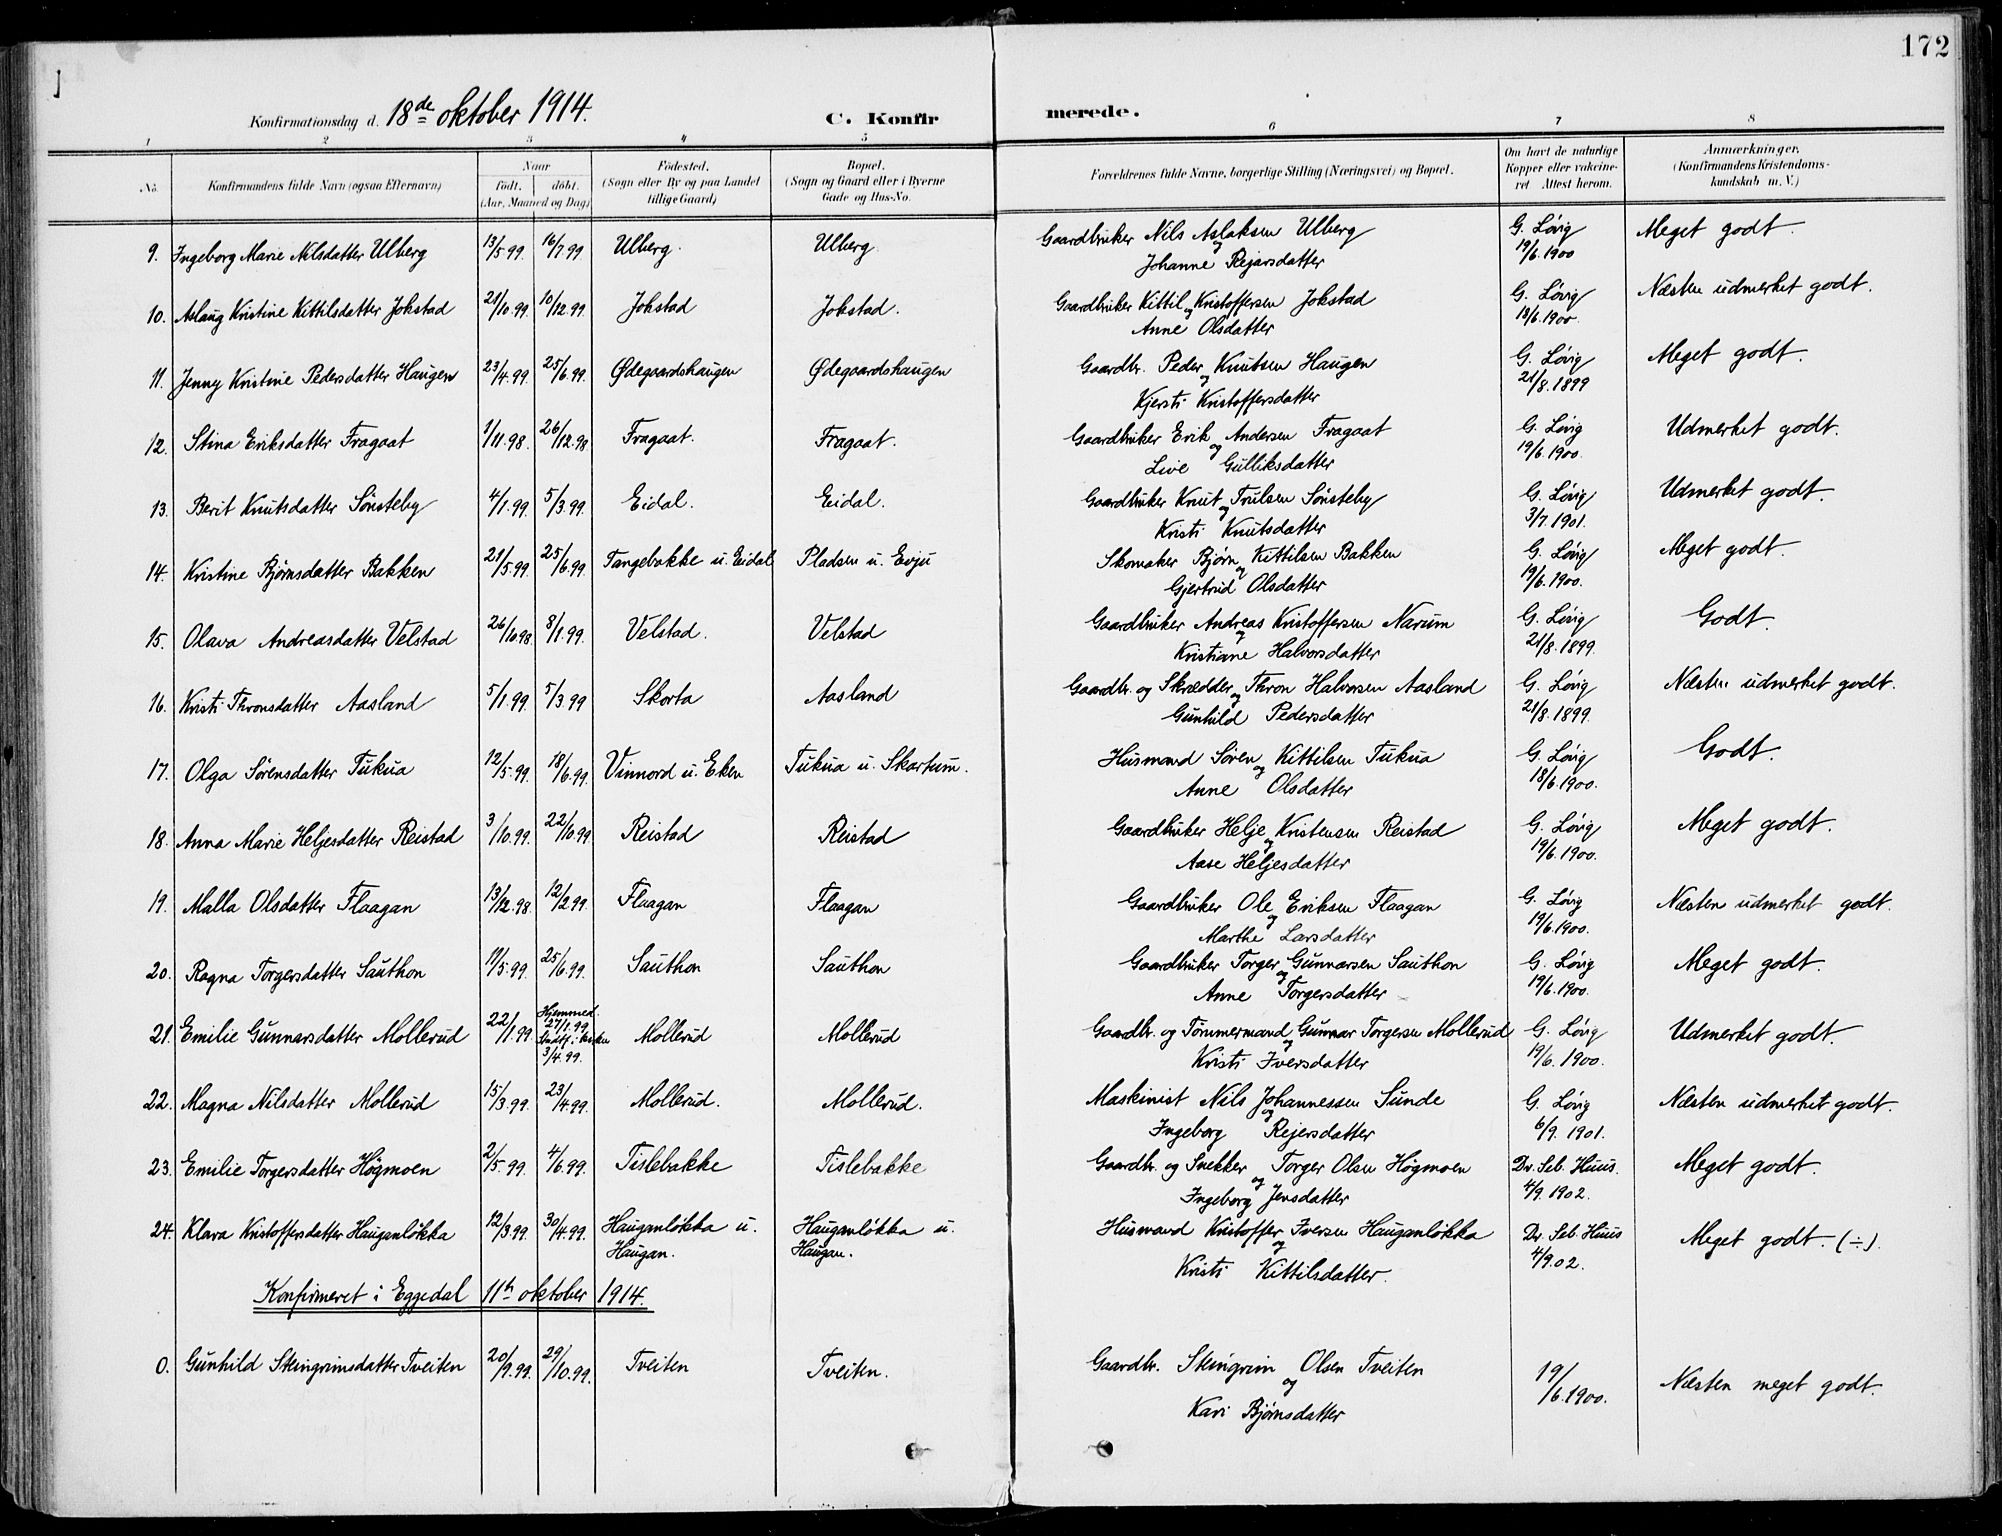 172
Konfirmationsdag d. 18de oktober 1914. C. Konfirmerede.
1 2 3 4 5 6 7 8
No. Konfirmandens fulde Navn (ogsaa Efternavn) Naar født. døbt. (Aar, Maaned og Dag) Fødested. (Sogn eller By og paa Landet tillige Gaard) Bopæl. (Sogn og Gaard eller i Byerne Gade og Hus-No. Forældrenes fulde Navne, borgerlige Stilling (Næringsvei) og Bopæl. Om havt de naturlige Kopper eller vakcineret Attest herom. Anmærkninger. (Konfirmandens Kristendomskundskab m. V.)
9. Ingeborg Marie Nilsdatter Ulberg 13/5.99. 16/7.99 Ulberg. Ulberg. Gaardbruker Nils Aslaksen Ulberg G. Lövig Meget godt.
og Johanne Rejarsdatter 19/6.1900
10. Aslaug Kristine Kittilsdatter Jokstad 21/10.99. 10/12.99. Jokstad Jokstad. Gaardbruker Kittil Kristoffersen Jokstad G. Lövig Næsten udmerket godt.
og Anne Olsdatter 18/6.1900.
11. Jenny Kristine Pedersdatter Haugen 23/4.99. 25/6.99. Ødegaardshaugen Ødegaardshaugen Gaardbr. Peder Knutsen Haugen G. Lövig Meget godt.
og Kjersti Kristoffersdatter 21/8.1899
12. Stina Eriksdatter Fragaat 1/11.98. 26/12.98. Fragaat. Fragaat. Gaardbruker Erik Andersen Fragaat G. Lövig Udmerket godt.
og Live Gulliksdatter 19/6.1900.
13. Berit Knutsdatter Sönsteby 4/1.99. 5/3.99. Eidal. Eidal. Gaardbruker Knut Trulsen Sönsteby G. Lövig Udmerket godt.
og Kristi Knutsdatter 3/7.1901.
14. Kristine Bjørnsdatter Bakken 21/5.99. 25/6.99. Tangebakke u. Eidal Pladsen u. Evju Skomaker Bjørn Kittilsen Bakken G. Lövig Meget godt.
og Gjertrud Olsdatter 19/6.1900.
15. Olava Andreasdatter Velstad 26/10.98. 8/1.99. Velstad. Velstad Gaardbruker Andreas Kristoffersen Narum G. Lövig Godt.
og Kristiane Halvorsdatter 21/8.1899.
16. Kristi Thronsdatter Aasland 5/1.99. 5/3.99 Skorta Aasland Gaardbr. og Skrædder Thron Halvorsen Aasland G. Lövig Næsten udmerket godt.
og Gunhild Pedersdatter 21/8.1899.
17. Olga Sörensdatter Tukua 12/5.99. 18/6.99. Vinnord u. Eken Tukua u. Skartum. Husmand Sören Kittilsen Tukua G. Lövig Godt.
og Anne Olsdatter 18/6.1900.
18. Anna Marie Heljesdatter Reistad 3/10.99. 22/10.99. Reistad Reistad Gaardbruker Helje Kristensen Reistad G. Lövig Meget godt.
og Aase Heljesdatter 19/6.1900.
19. Malla Olsdatter Flaagan 13/12.98. 12/2.99. Flaagan Flaagan Gaardbruker Ole Eriksen Flaagan G. Lövig Næsten udmerket godt.
og Marthe Larsdatter 19/6.1900.
20. Ragna Torgersdatter Sauthon 11/5.99. 25/6.99. Sauthon Sauthon Gaardbruker Torger Gunnarsen Sauthon G. Lövig Meget godt.
og Anne Torgersdatter 19/6.1900.
21. Emilie Gunnarsdatter Mollerud 22/1.99. Hjemmed. 27/1.99. Stadf. i kirken 3/4.99. Mollerud Mollerud Gaardbr. og Tömmermand Gunnar Torgersen Mollerud G. Lövig Udmerket godt.
og Kristi Iversdatter 19/6.1900.
22. Magna Nilsdatter Mollerud 15/3.99. 23/4.99. Mollerud. Mollerud. Maskinist Nils Johannessen Sunde G. Lövig Næsten udmerket godt.
og Ingeborg Rejersdatter 6/9.1901.
23. Emilie Torgersdatter Högmoen 2/5.99. 4/6.99. Tislebakke Tislebakke Gaardbr. og Snekker Torger Olsen Högmoen Dr. Seb. Huus. Meget godt.
og Ingeborg Jensdatter 4/9.1902.
24. Klara Kristoffersdatter Hauganlökka 12/3.99. 30/4.99. Hauganlökka u. Haugan. Hauganlökka u. Haugan. Husmand Kristoffer Iversen Hauganlökka Dr. Seb. Huus Meget godt. (÷).
og Kristi Kittilsdatter. 4/9.02.
Konfirmeret i Eggedal 11te oktober 1914.
0. Gunhild Steingrimsdatter Tveiten 20/9.99. 29/10.99. Tveiten Tveiten. Gaardbr. Steingrim Olsen Tveiten 19/6.1900. Næsten meget godt.
og Kari Bjørnsdatter